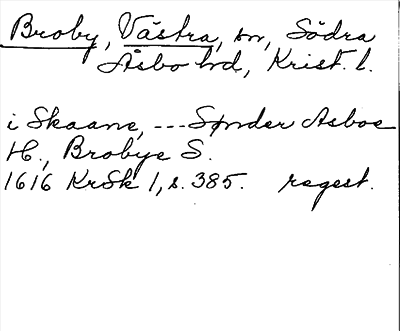 Broby, Västra, sn, Södra
Åsbo hd, Krist. l.
i Skaane, --- Sønder Asboe
H., Brobye S.
1616 KrSk 1, s. 385. regest.